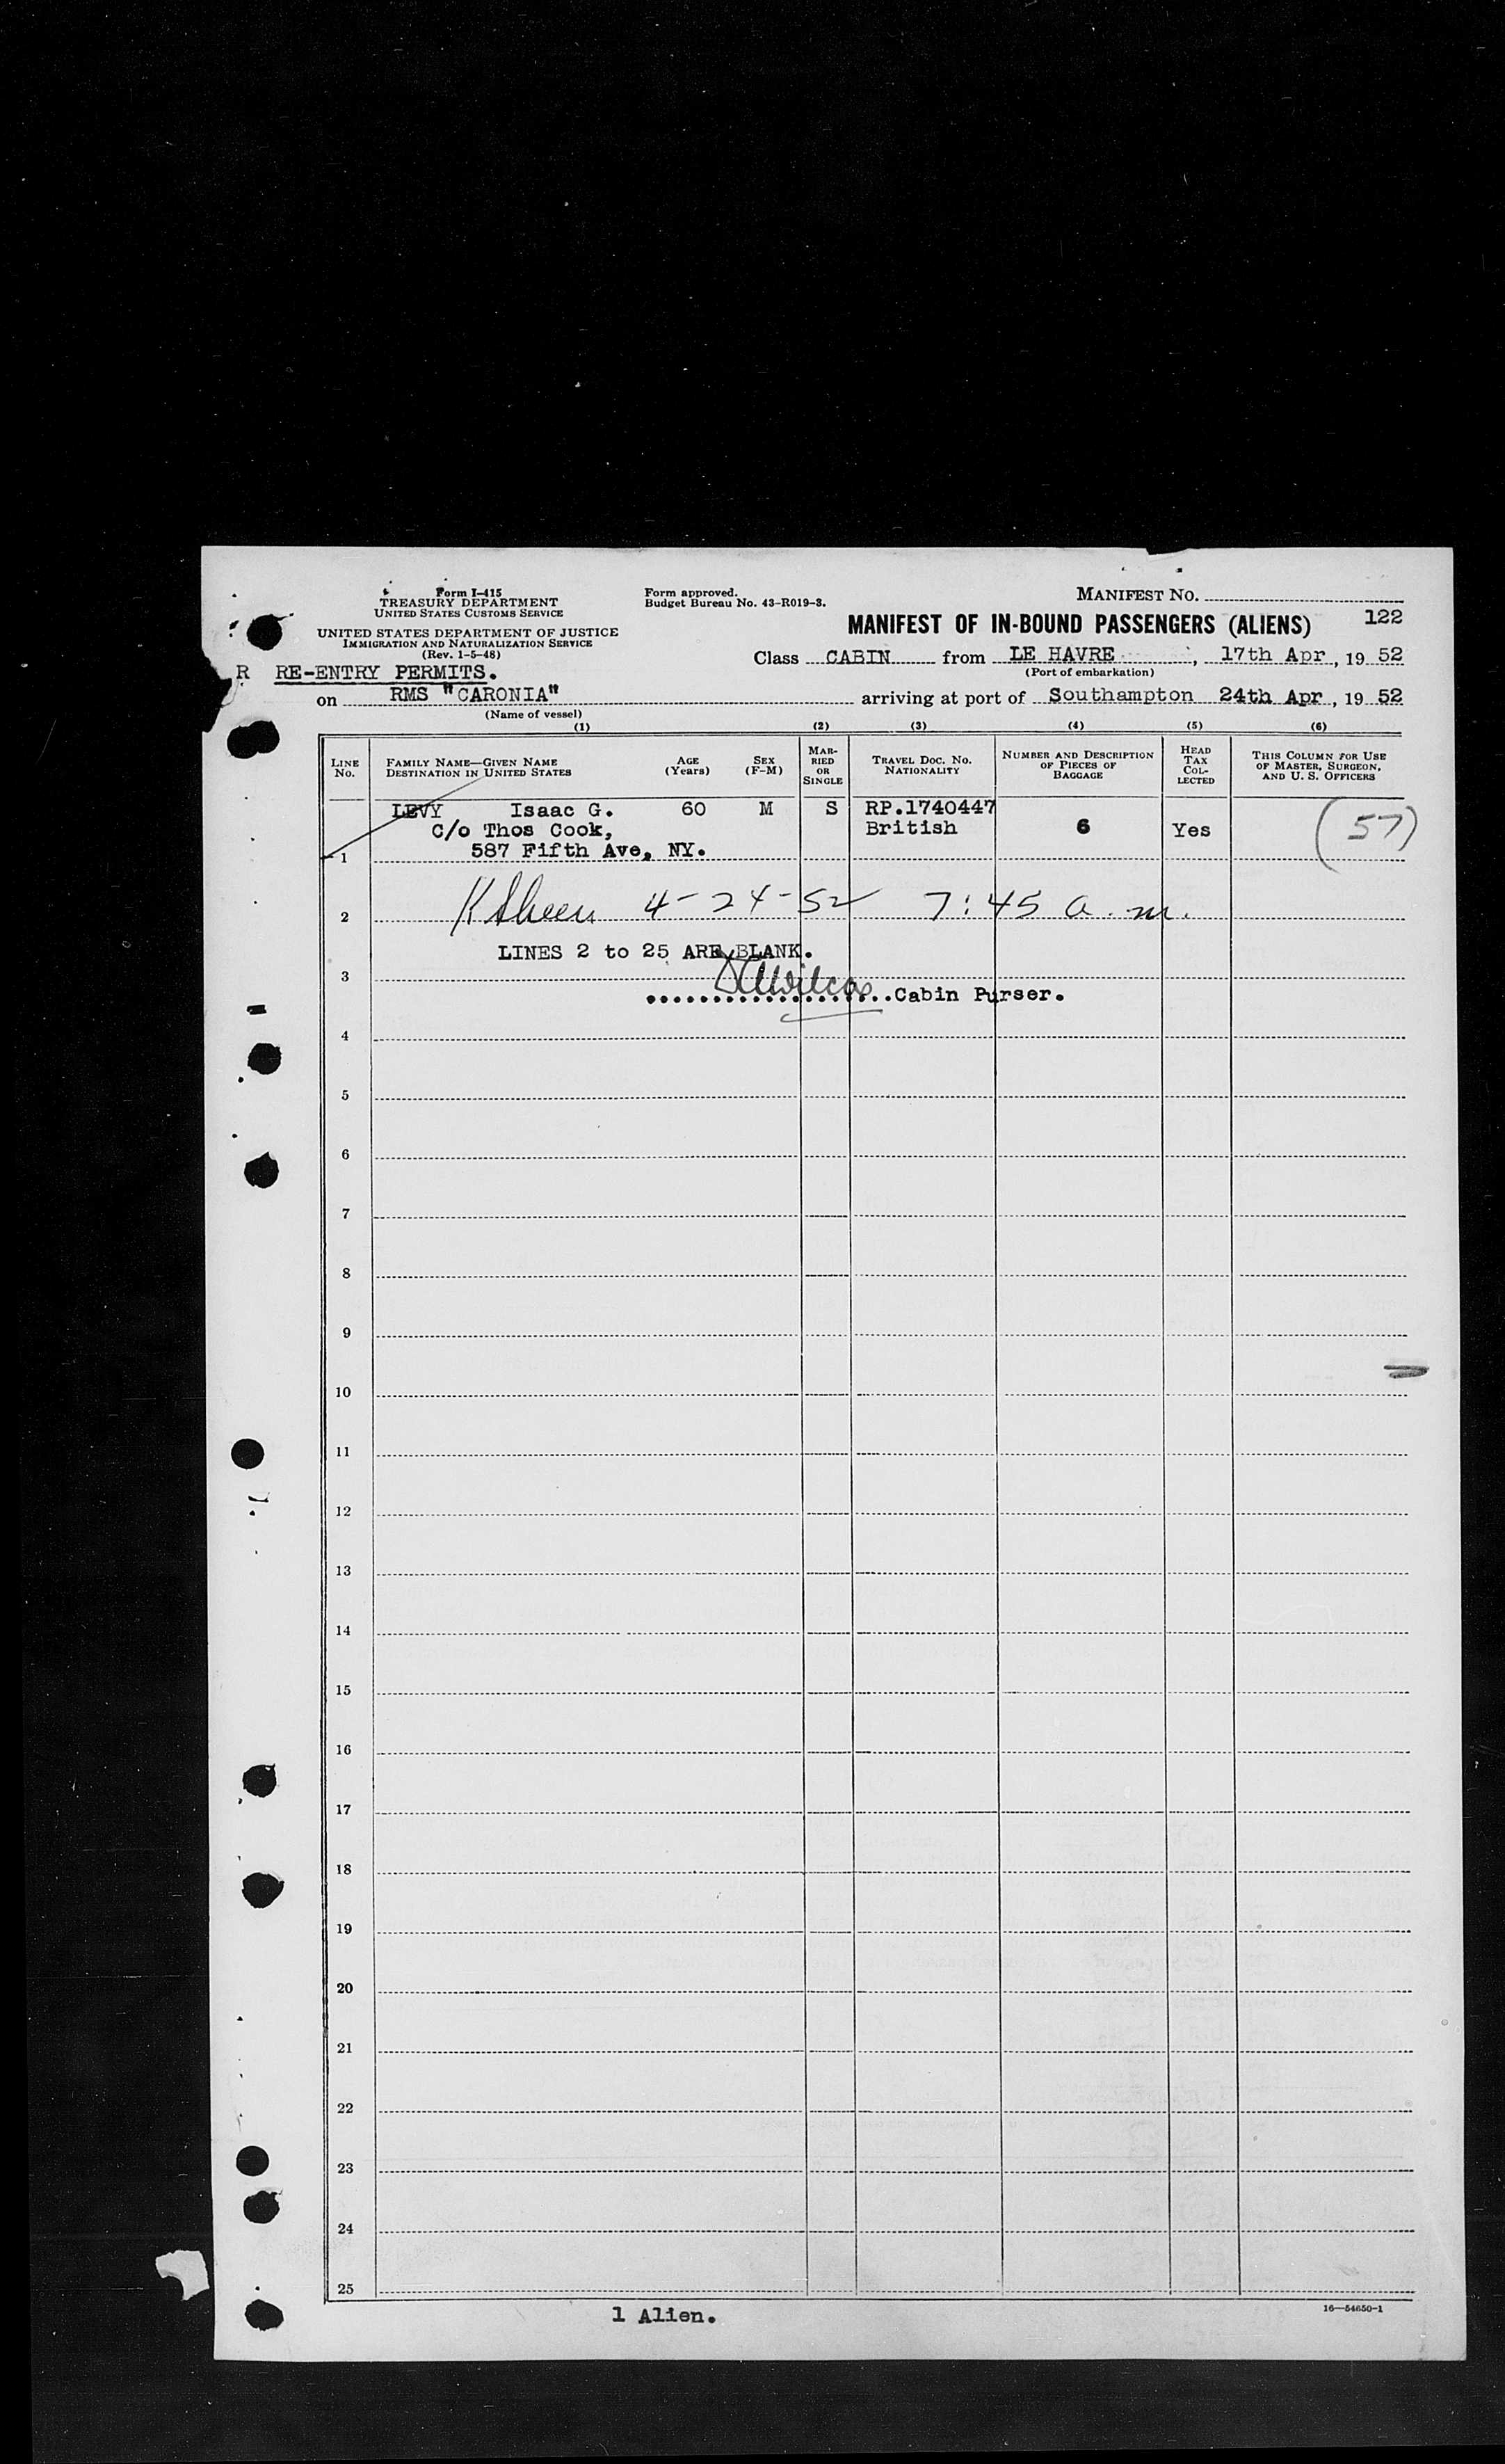 Form I-415
TREASURY DEPARTMENT
UNITED STATES CUSTOMS SERVICE
UNITED STATES DEPARTMENT OF JUSTICE
IMMIGRATION AND NATURALIZATION SERVICE
(Rev. 1-5-48)
Form approved.
Budget Bureau No. 43-R019-3.
MANIFEST NO.
122
MANIFEST OF IN-BOUND PASSENGERS (ALIENS)
Class CABIN from LE HAVRE, 17th Apr, 19 52
(Port of embarkation)
R RE-ENTRY PERMITS.
on RMS "CARONIA" arriving at port of Southampton 24th Apr, 19 52
(Name of vessel)
(1) (2) (3) (4) (5) (6)
LINE NO. FAMILY NAME—GIVEN NAME DESTINATION IN UNITED STATES AGE (Years) SEX (F-M) MARRIED OR SINGLE TRAVEL DOC. NO. NATIONALITY NUMBER AND DESCRIPTION OF PIECES OF BAGGAGE HEAD TAX COLLECTED THIS COLUMN FOR USE OF MASTER, SURGEON, AND U. S. OFFICERS
LEVY Isaac G. 60 M S RP.1740447
C/o Thos Cook, British 6 Yes (57)
1 587 Fifth Ave, NY.
2 4-24-52 7:45 a.m.
LINES 2 to 25 ARE BLANK.
3 Wilcox
Cabin Purser.
4
5
6
7
8
9
10
11
12
13
14
15
16
17
18
19
20
21
22
23
24
25
1 Alien.
16—54650-1